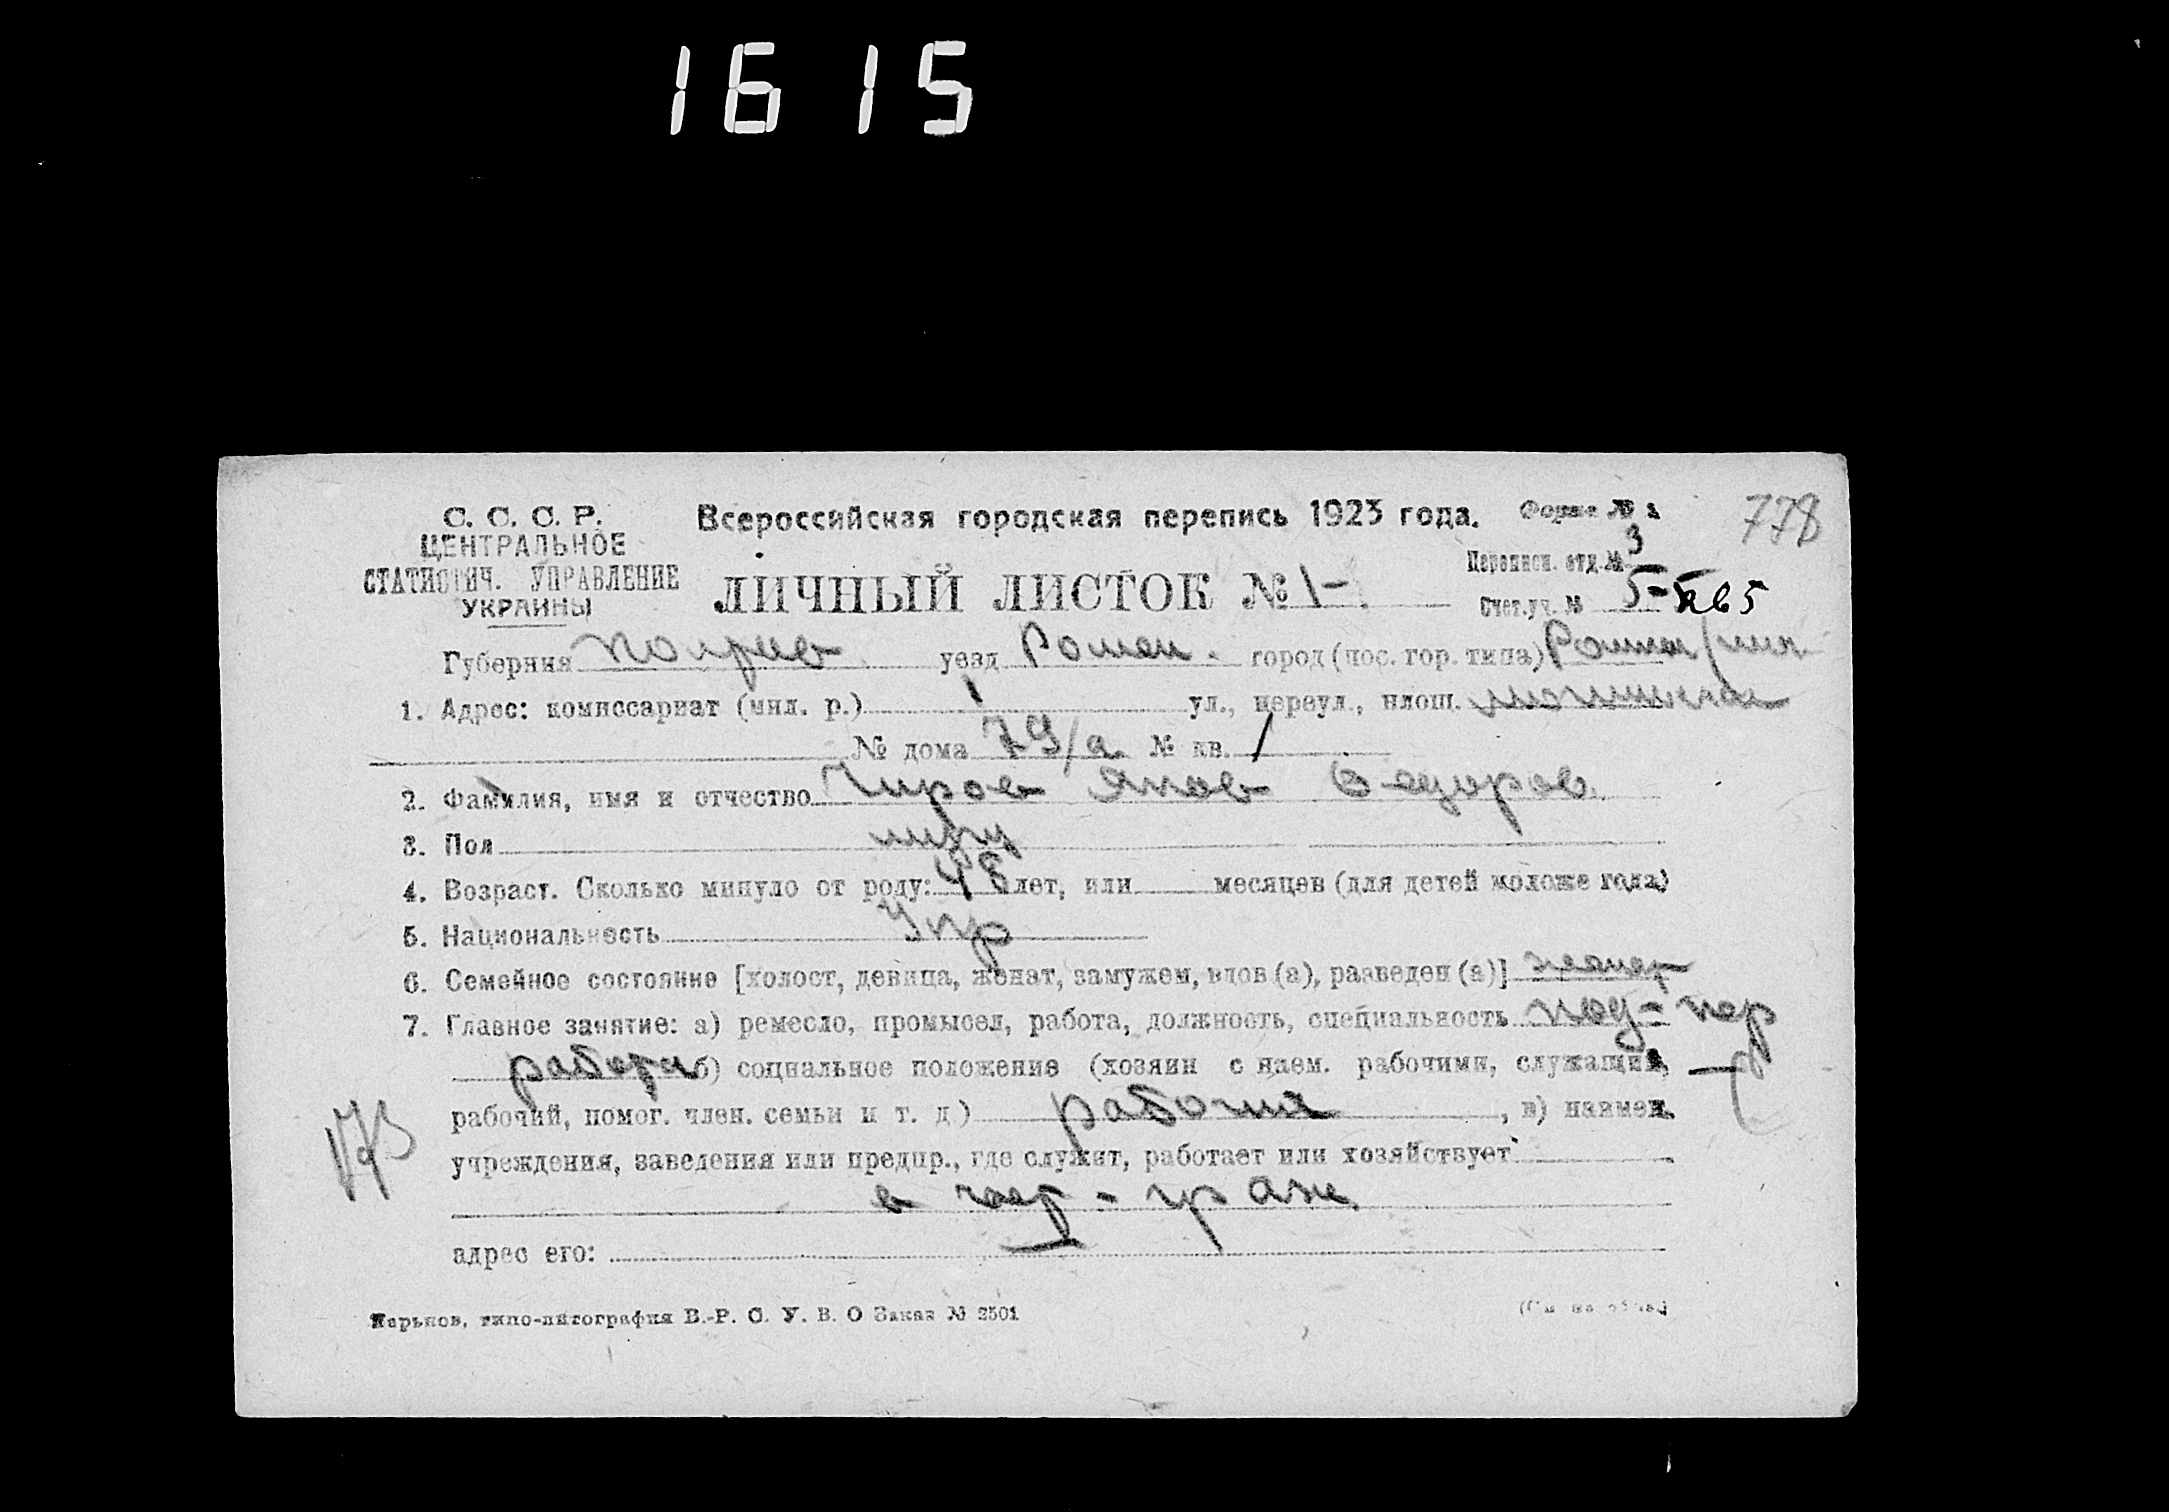 1615
С. С. С. Р.
ЦЕНТРАЛЬНОЕ
СТАТИСТИЧ. УПРАВЛЕНИЕ
УКРАИНЫ
Всероссийская городская перепись 1923 года.
Форма № 1
778
Переписн. отд. № 3
ЛИЧНЫЙ ЛИСТОК № 1-.
Счет. уч. № 5-
Губерния уезд Ромен. город (пос. гор. типа)
1. Адрес: комиссариат (мил. р.) 1 ул., переул., площ.
№ дома 79/а № кв. 1
2. Фамилия, имя и отчество Чиров Яков Федоров
3. Пол муж
4. Возраст. Сколько минуло от роду: 48 лет, или месяцев (для детей моложе года)
5. Национальность Укр
6. Семейное состояние [холост, девица, женат, замужем, вдов (а), разведен (а)] женат
7. Главное занятие: а) ремесло, промысел, работа, должность, специальность под-
б) социальное положение (хозяин с наем. рабочими, служащий,
рабочий, помог. член. семьи и т. д.) рабочий, в) наимен.
173
учреждения, заведения или предпр., где служит, работает или хозяйствует
в
адрес его:
Харьков, типо-литография В.-Р. С. У. В. О Заказ № 2501
(См. на обор.)